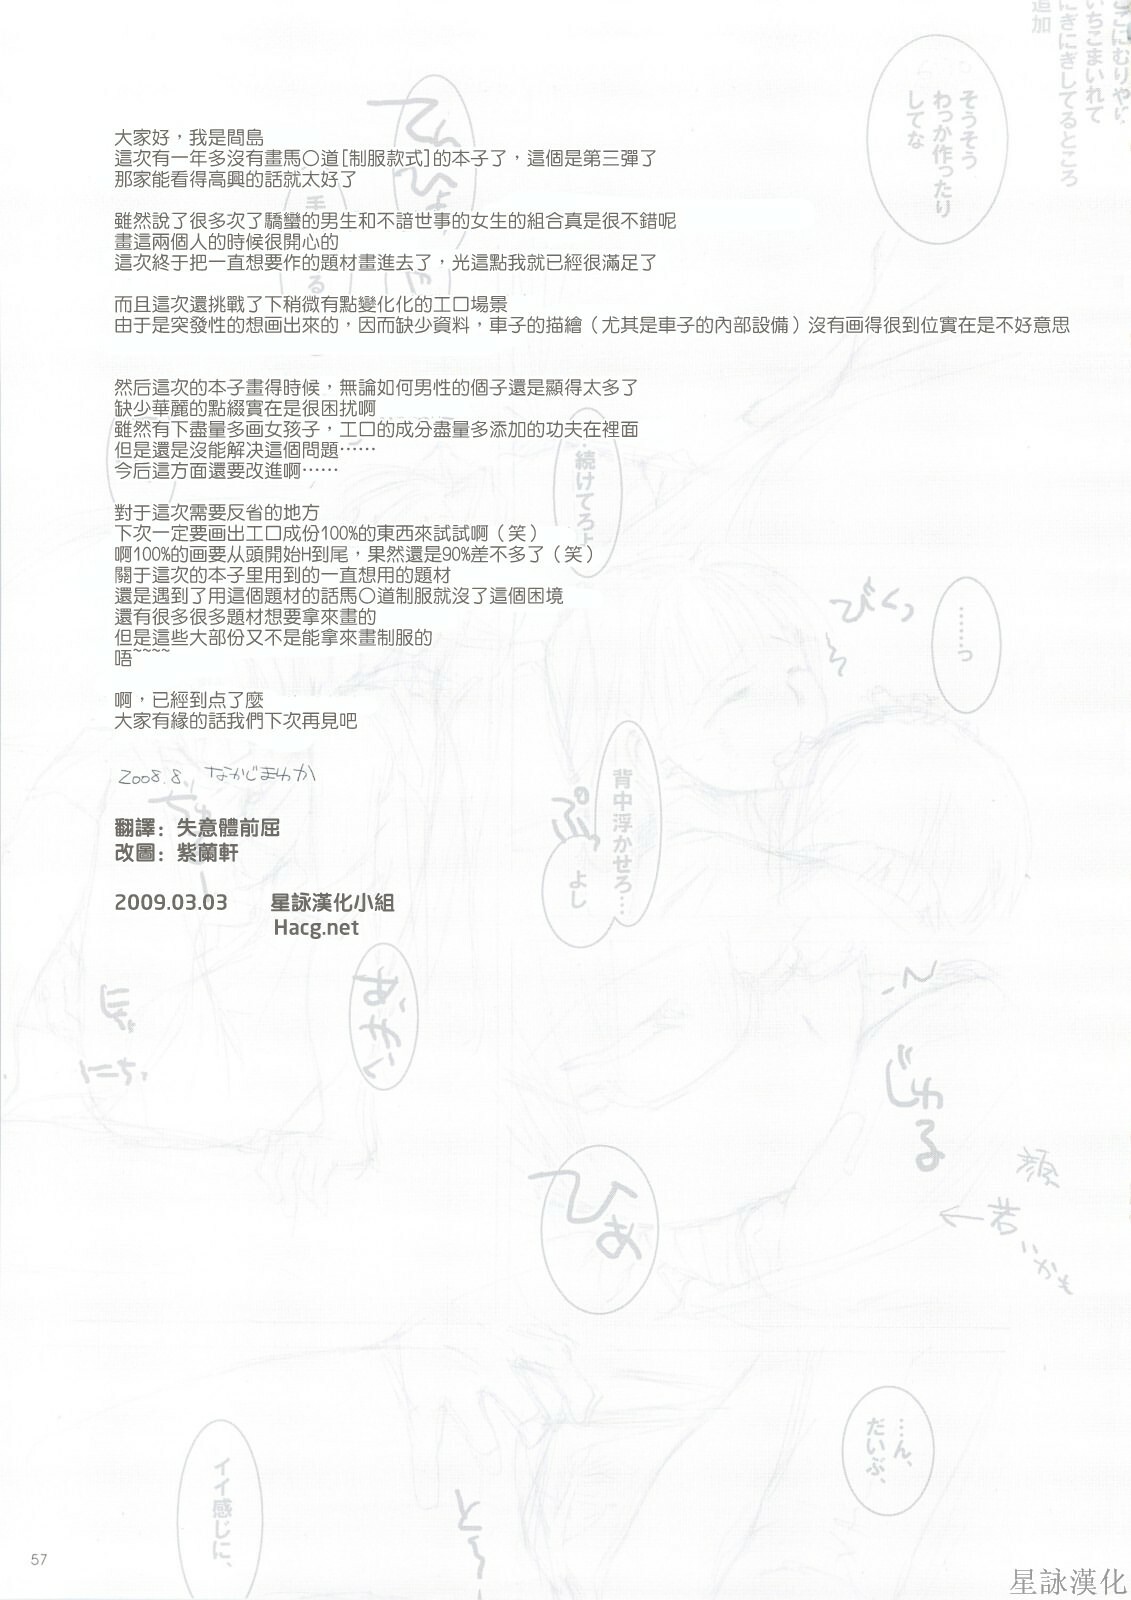 大家好，我是間島
這次有一年多沒有畫馬〇道[制服款式]的本子了，這個是第三彈了
那家能看得高興的話就太好了
雖然說了很多次了驕蠻的男生和不諳世事的女生的組合真是很不錯呢
畫這兩個人的時候很開心的
這次終于把一直想要作的題材畫進去了，光這點我就已經很滿足了
而且這次還挑戰了下稍微有點變化化的工口場景
由于是突發性的想画出來的，因而缺少資料，車子的描繪（尤其是車子的內部設備）沒有画得很到位實在是不好意思
然后這次的本子畫得時候，無論如何男性的個子還是顯得太多了
缺少華麗的點綴實在是很困扰啊
雖然有下盡量多画女孩子，工口的成分盡量多添加的功夫在裡面
但是還是沒能解决這個問題……
今后這方面還要改進啊……
對于這次需要反省的地方
下次一定要画出工口成份100%的東西來試試啊（笑）
啊100%的画要从頭開始H到尾，果然還是90%差不多了（笑）
關于這次的本子里用到的一直想用的題材
還是遇到了用這個題材的話馬〇道制服就沒了這個困境
還有很多很多題材想要拿來畫的
但是這些大部份又不是能拿來畫制服的
唔~~~~
啊，已經到点了麼
大家有緣的話我們下次再見吧
2008.8. なかじまゆか
翻譯：失意體前屈
改圖：紫蘭軒
2009.03.03 星詠漢化小組
Hacg.net
ここにむりやり
いちこまいれて
にぎにぎしてるところ
追加
そうそう
わっか作ったり
してな
てぃ
ひょ
手
る
か
続けてろよ
びくっ
……っ
背中浮かせろ…
よし
ぷぅ
にち、
じゅる
ひぁ
顔
若
いかも
…ん、
だいぶ、
イイ感じに、
57
星詠漢化